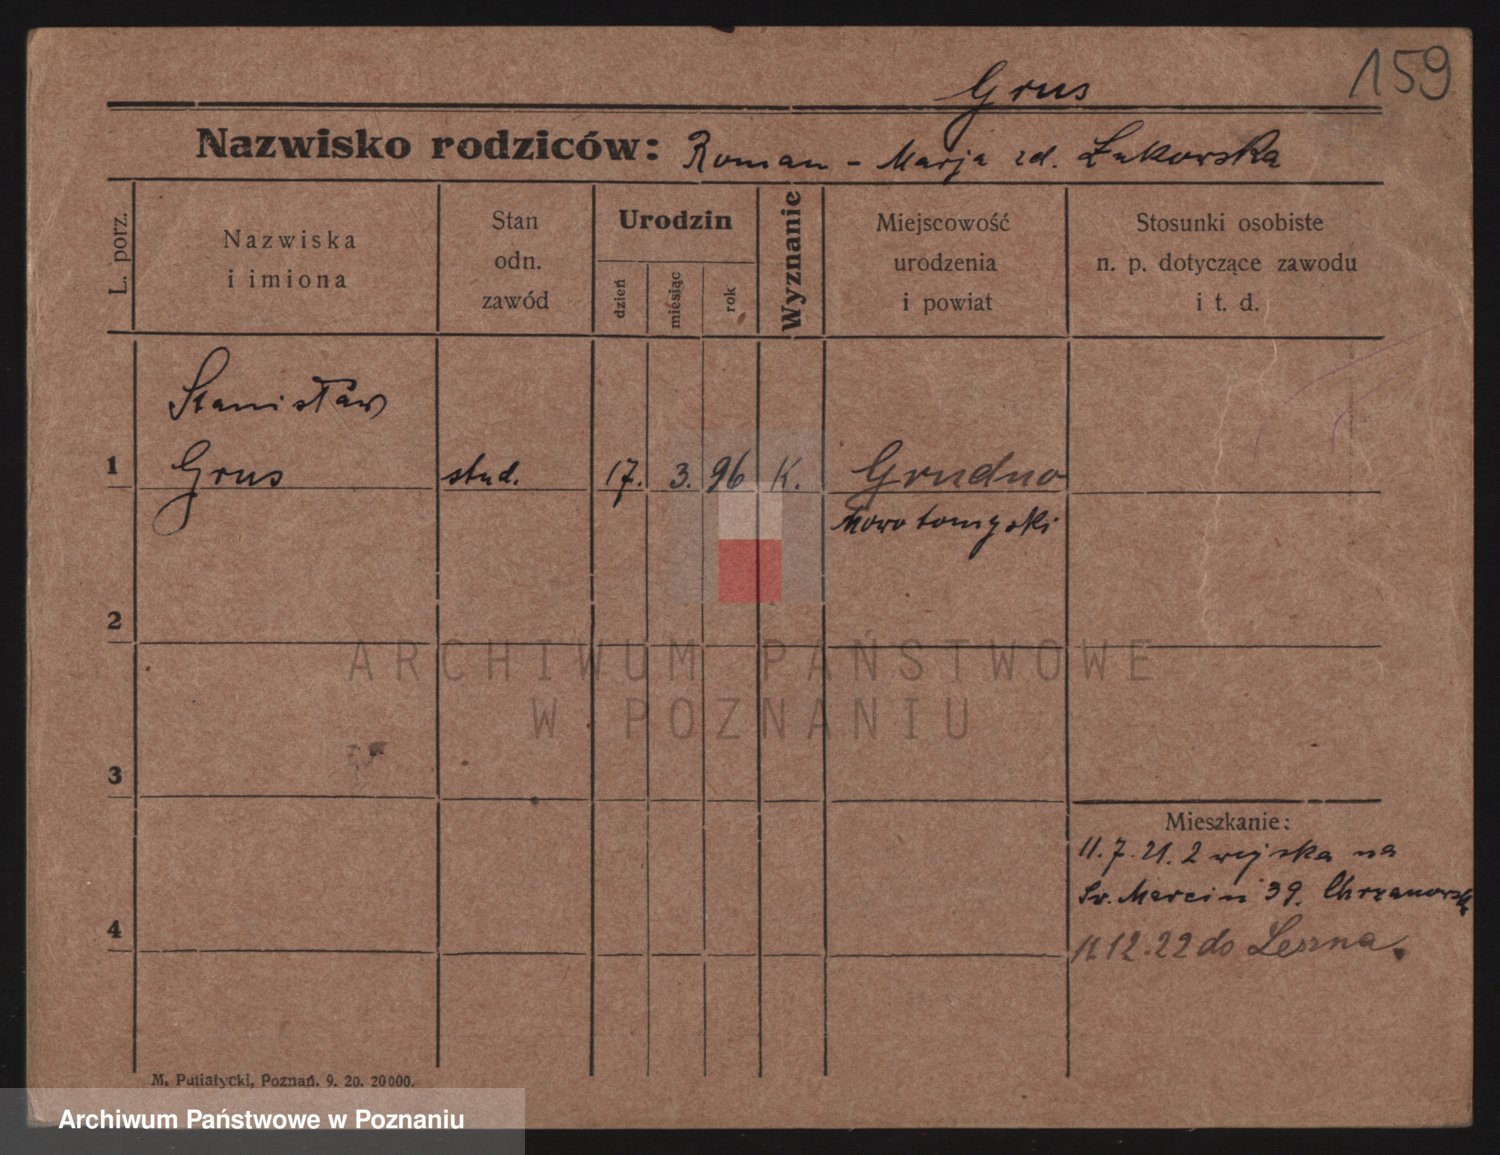 159
Grus
Nazwisko rodziców: Roman - Marja zd. Łukowska
L. porz.
Nazwiska
i imiona
Stan
odn.
zawód
Urodzin
dzień
miesiąc
rok
Wyznanie
Miejscowość
urodzenia
i powiat
Stosunki osobiste
n. p. dotyczące zawodu
i t. d.
Stanisław
1 Grus stud. 17. 3. 96 K. Grudno
Nowotomyski
2
ARCHIWUM PAŃSTWOWE
W POZNANIU
3
Mieszkanie:
11.7.21. z wojska na
Św. Marcin 39. Chrzanowski
4
12.22 do Leszna.
M. Putiatycki, Poznań. 9. 20. 20000.
Archiwum Państwowe w Poznaniu